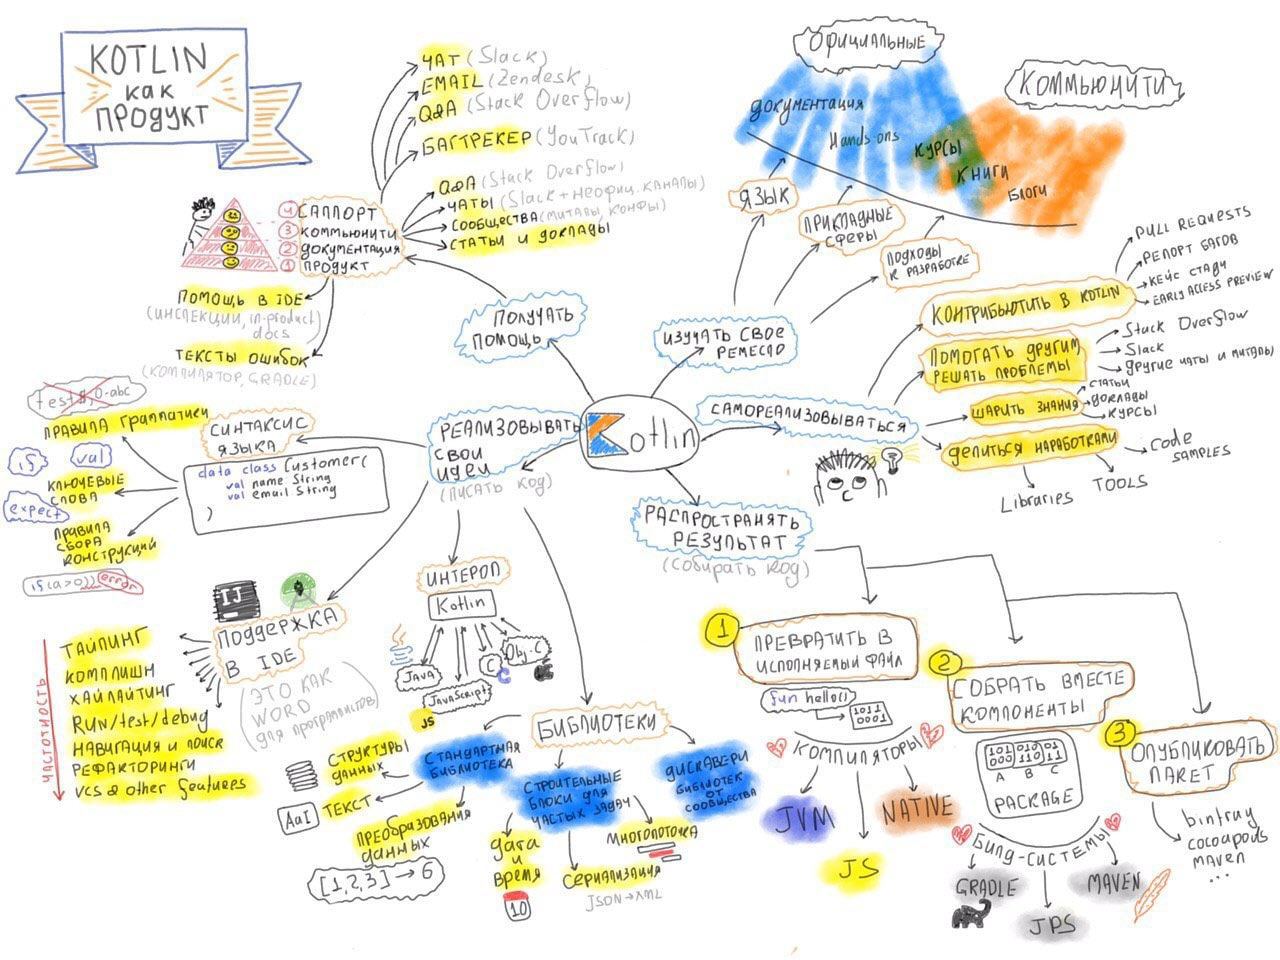 KOTLIN
как
продукт
ЧАТ (Slack)
EMAIL (Zendesk)
Q&A (Stack Overflow)
БАГТРЕКЕР (YouTrack)
Q&A (Stack Overflow)
ЧАТЫ (Slack + неофиц. каналы)
сообщества (митапы, конфы)
статьи и доклады
4 САППОРТ
3 коммьюнити
2 документация
1 продукт
помощь в IDE
(инспекции, in-product
docs)
тексты ошибок
(компилятор, GRADLE)
получать
помощь
официальные
коммьюнити
документация
Hands ons
курсы
книги
блоги
язык
прикладные
сферы
подходы
к разработке
изучать свое
ремесло
контрибьютить в KOTLIN
PULL REQUESTS
репорт багов
кейс стади
EARLY ACCESS PREVIEW
помогать другим,
решать проблемы
Stack Overflow
Slack
другие чаты и митапы)
шарить знания
статьи
доклады
курсы
делиться наработками
code
SAMPLES
TOOLS
Libraries
самореализовываться
Kotlin
реализовывать
свои
идеи
(писать код)
синтаксис
языка
data class Customer(
val name String
val email String
)
0-abc
правила грамматики
if
val
ключевые
слова
expect
правила
сбора
конструкций
if(a>0)) error
IJ
поддержка
в IDE
(это как
WORD
для программистов)
частотность
тайпинг
комплишн
хайлайтинг
Run/test/debug
навигация и поиск
рефакторинги
vcs & other features
интероп
Kotlin
JAVA
JavaScript
JS
C
C
Obj-C
библиотеки
стандартная
библиотека
структуры
данных
AaI
текст
преобразования
данных
[1,2,3] → 6
строительные
блоки для
частых задач
дата
и
время
10
сериализация
JSON→XML
многопоточка
дискавери
библиотек
от
сообщества
распространять
результат
(собирать код)
1
превратить в
исполняемый файл
fun hello()
1011
0001
компиляторы
JVM
JS
NATIVE
2
собрать вместе
компоненты
101 010 01
000 110 11
A B C
PACKAGE
билд-системы
GRADLE
JPS
MAVEN
3
опубликовать
пакет
bintray
cocoapods
maven
...